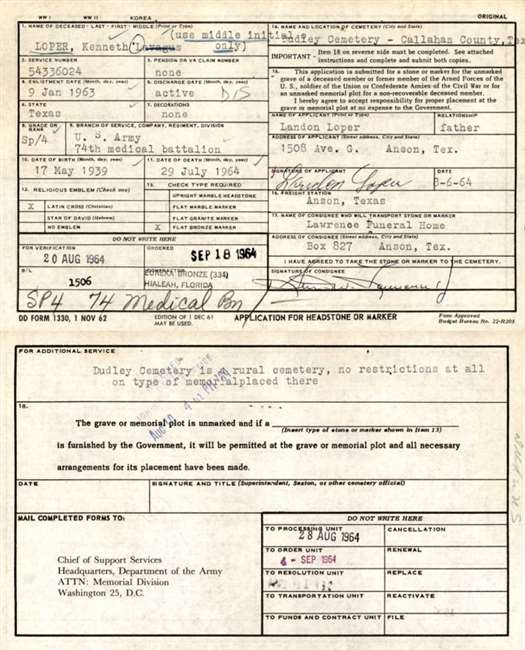 WW I WW II KOREA ORIGINAL
1. NAME OF DECEASED - LAST - FIRST - MIDDLE (Print or Type)
(use middle initial
LOPER, Kenneth Lavagus only)
14. NAME AND LOCATION OF CEMETERY (City and State)
Dudley Cemetery - Callahan County, Tex
IMPORTANT - Item 18 on reverse side must be completed. See attached instructions and complete and submit both copies.
2. SERVICE NUMBER
54336024
3. PENSION OR VA CLAIM NUMBER
none
4. ENLISTMENT DATE (Month, day, year)
9 Jan 1963
5. DISCHARGE DATE (Month, day, year)
active D/S
15. This application is submitted for a stone or marker for the unmarked
grave of a deceased member or former member of the Armed Forces of the
U. S., soldier of the Union or Confederate Armies of the Civil War or for
an unmarked memorial plot for a non-recovered deceased member.
I hereby agree to accept responsibility for proper placement at the
grave or memorial plot at no expense to the Government.
6. STATE
Texas
7. DECORATIONS
none
NAME OF APPLICANT (Print or Type)
Landon Loper
RELATIONSHIP
father
8. GRADE OR RANK
Sp/4
9. BRANCH OF SERVICE, COMPANY, REGIMENT, DIVISION
U. S. Army
74th medical battalion
ADDRESS OF APPLICANT (Street address, City and State)
1508 Ave. G. Anson, Tex.
10. DATE OF BIRTH (Month, day, year)
17 May 1939
11. DATE OF DEATH (Month, day, year)
29 July 1964
SIGNATURE OF APPLICANT
Landon Loper
DATE
8-6-64
12. RELIGIOUS EMBLEM (Check one)
X LATIN CROSS (Christian)
STAR OF DAVID (Hebrew)
NO EMBLEM
13. CHECK TYPE REQUIRED
UPRIGHT MARBLE HEADSTONE
FLAT MARBLE MARKER
FLAT GRANITE MARKER
X FLAT BRONZE MARKER
16. FREIGHT STATION
Anson, Texas
17. NAME OF CONSIGNEE WHO WILL TRANSPORT STONE OR MARKER
Lawrence Funeral Home
ADDRESS OF CONSIGNEE (Street address, City and State)
Box 827 Anson, Tex.
DO NOT WRITE HERE
FOR VERIFICATION
20 AUG 1964
ORDERED
SEP 18 1964
I HAVE AGREED TO TAKE THE STONE OR MARKER TO THE CEMETERY.
SIGNATURE OF CONSIGNEE
B/L
1506
CONTRACTOR
EUREKA BRONZE (334)
HIALEAH, FLORIDA
SP4 74 Medical Bn
DD FORM 1330, 1 NOV 62
EDITION OF 1 DEC 61
MAY BE USED.
APPLICATION FOR HEADSTONE OR MARKER
Form Approved
Budget Bureau No. 22-R205
FOR ADDITIONAL SERVICE
Dudley Cemetery is a rural cemetery, no restrictions at all
on type of memorialplaced there
18.
The grave or memorial plot is unmarked and if a
(Insert type of stone or marker shown in Item 13)
is furnished by the Government, it will be permitted at the grave or memorial plot and all necessary
arrangements for its placement have been made.
DATE
SIGNATURE AND TITLE (Superintendent, Sexton, or other cemetery official)
MAIL COMPLETED FORMS TO:
Chief of Support Services
Headquarters, Department of the Army
ATTN: Memorial Division
Washington 25, D.C.
DO NOT WRITE HERE
TO PROCESSING UNIT
28 AUG 1964
CANCELLATION
TO ORDER UNIT
4 - SEP 1964
RENEWAL
TO RESOLUTION UNIT
REPLACE
TO TRANSPORTATION UNIT
REACTIVATE
TO FUNDS AND CONTRACT UNIT
FILE